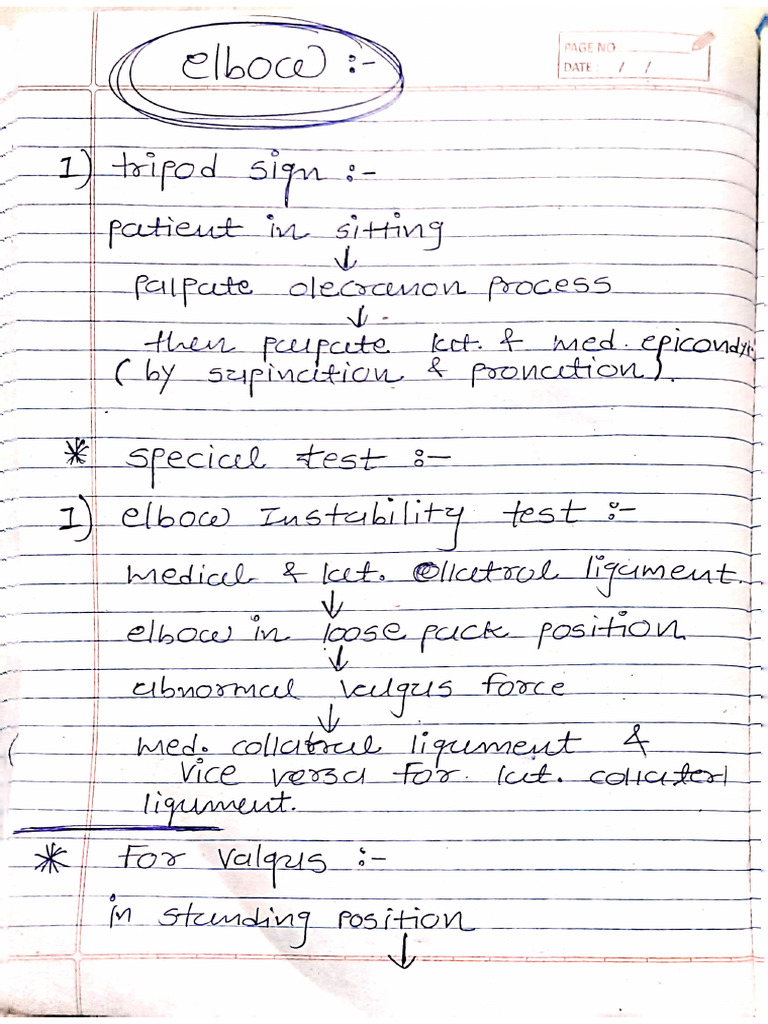 elbow :-
PAGE NO
DATE : / /
1) tripod sign :-
patient in sitting
↓
palpate olecranon process
↓
then palpate lat. & med. epicondy
(by supination & pronation).
* special test :-
1) elbow Instability test :-
medial & lat. collatral ligament.
↓
elbow in loose pack position
↓
abnormal valgus force
↓
med. collatral ligament &
vice versa for lat. collaterl
ligament.
* for valgus :-
in standing position
↓